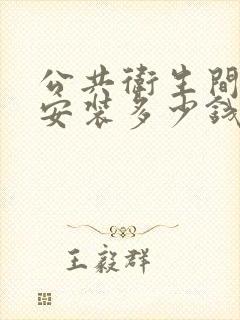 公共衛生間
安裝多少錢
王毅群